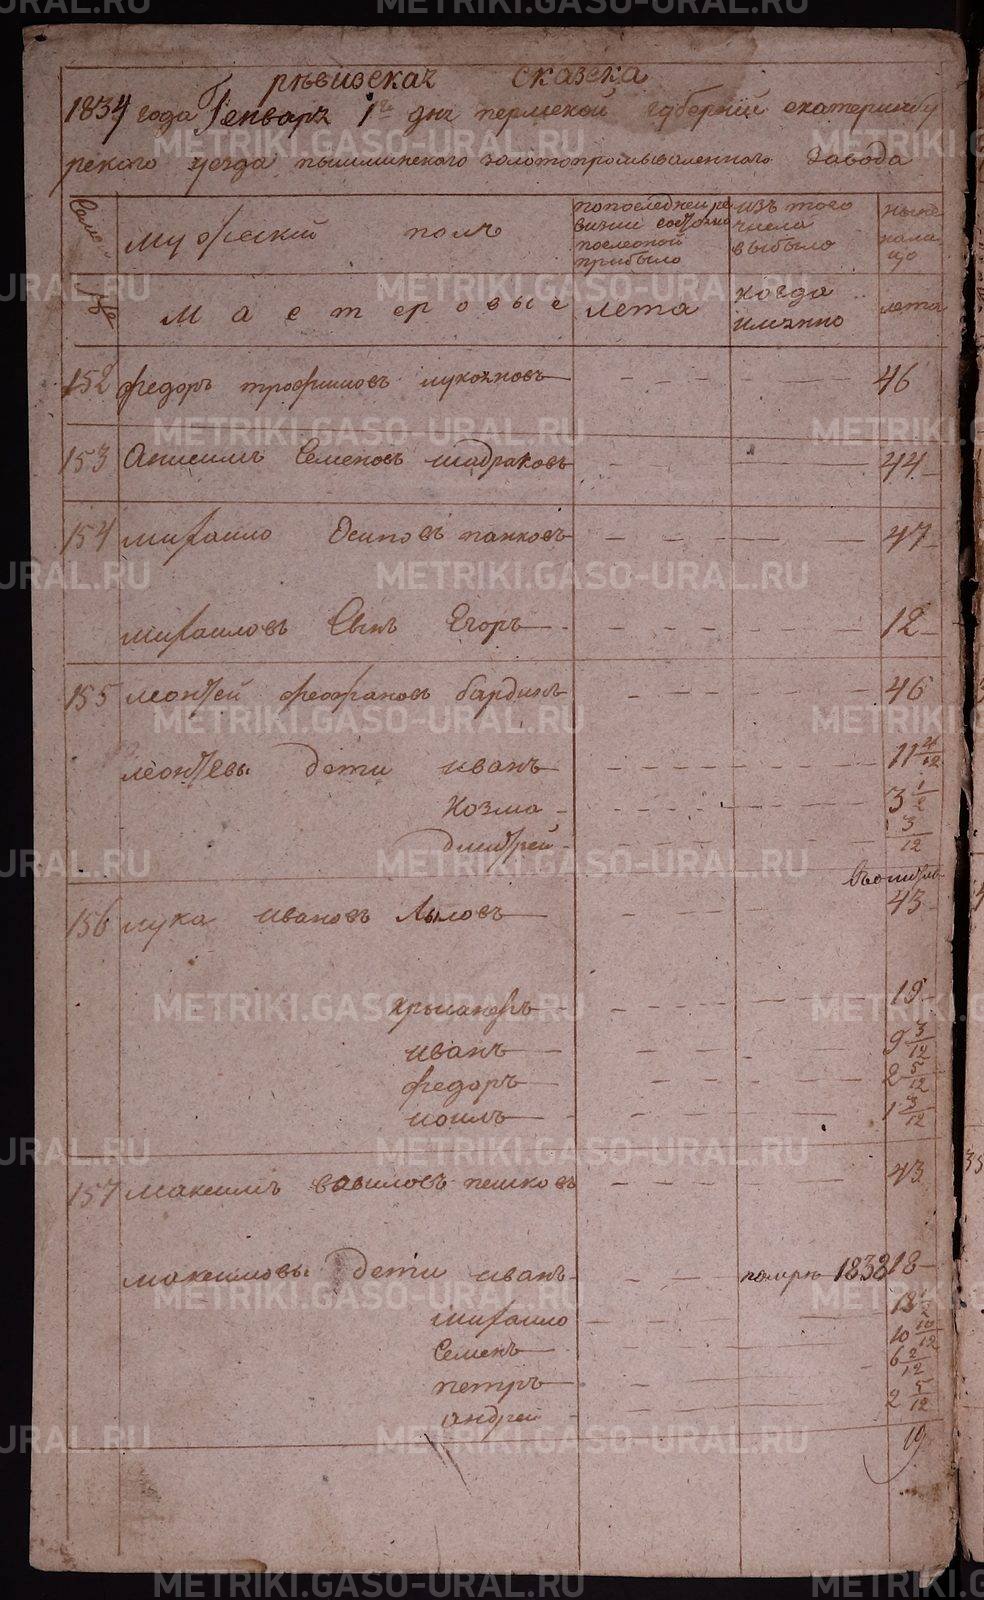 рѣвизская сказска
1834 года Генваря 1го дня пермской губернии екатеринбу
ргского уезда пышминского золотопромываленного завода
мужеский полъ
попоследней ре
визии состояло
последней
прибыло
изъ того
числа
выбыло
ныне
нали
цо
мастеровые
лета
когда
имянно
лета
152 федоръ трофимовъ лукояновъ 46
153 Анисимъ Семеновъ шадраковъ 44
154 михаило Осиповъ панковъ 47
михаиловъ Сынъ Егоръ 12
155 леонтей феофановъ бардинъ 46
леонтьевы дети иванъ 11
Козма 3 1/2
дмитрей 3/12
156 лука ивановъ Лыловъ 43
19
иванъ 9 3/12
федоръ 2 5/12
1 3/12
157 максимъ вавиловъ пешковъ 43
максимовы дети иванъ помре 1838 18
михаило
Семенъ 10 10/12
петръ 6 2/12
андрей 2 5/12
19
METRIKI.GASO-URAL.RU